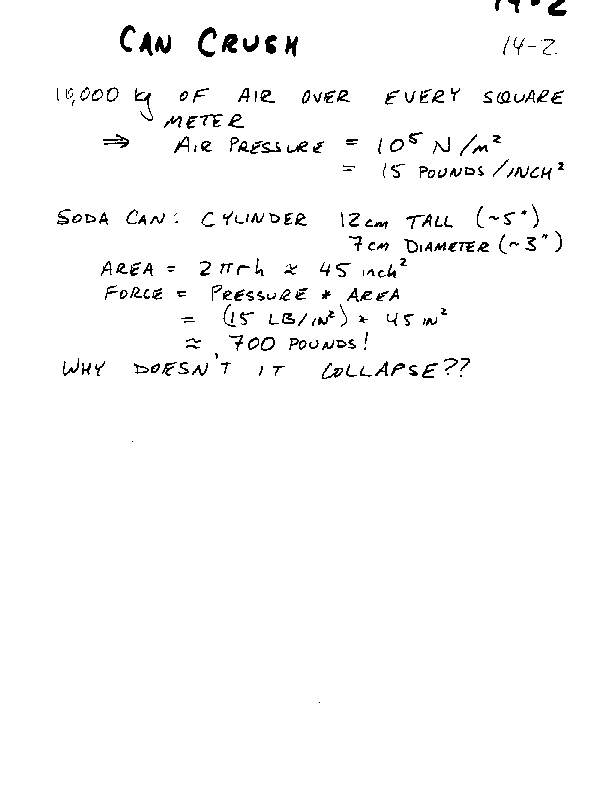 14-2
CAN CRUSH
14-2
10,000 kg OF AIR OVER EVERY SQUARE
METER
⇒ AIR PRESSURE = 10⁵ N/m²
= 15 POUNDS/INCH²
SODA CAN: CYLINDER 12cm TALL (~5")
7cm DIAMETER (~3")
AREA = 2πrh ≈ 45 inch²
FORCE = PRESSURE * AREA
= (15 LB/IN²) * 45 IN²
≈ 700 POUNDS!
WHY DOESN'T IT COLLAPSE??